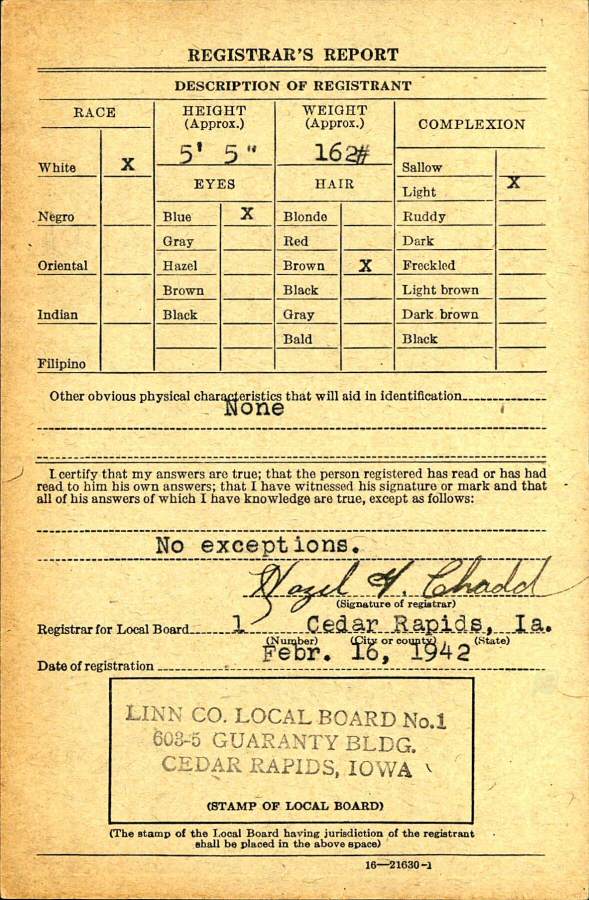 REGISTRAR'S REPORT
DESCRIPTION OF REGISTRANT
RACE
HEIGHT
(Approx.)
WEIGHT
(Approx.)
COMPLEXION
5' 5"
162#
White X
EYES
HAIR
Sallow
Light X
Negro
Blue X
Blonde
Ruddy
Gray
Red
Dark
Oriental
Hazel
Brown X
Freckled
Brown
Black
Light brown
Indian
Black
Gray
Dark brown
Bald
Black
Filipino
Other obvious physical characteristics that will aid in identification
None
I certify that my answers are true; that the person registered has read or has had
read to him his own answers; that I have witnessed his signature or mark and that
all of his answers of which I have knowledge are true, except as follows:
No exceptions.
Hazel H. Chadd
(Signature of registrar)
Registrar for Local Board 1 Cedar Rapids, Ia.
(Number) (City or county) (State)
Date of registration Febr. 16, 1942
LINN CO. LOCAL BOARD No.1
603-5 GUARANTY BLDG.
CEDAR RAPIDS, IOWA
(STAMP OF LOCAL BOARD)
(The stamp of the Local Board having jurisdiction of the registrant
shall be placed in the above space)
16—21630-1